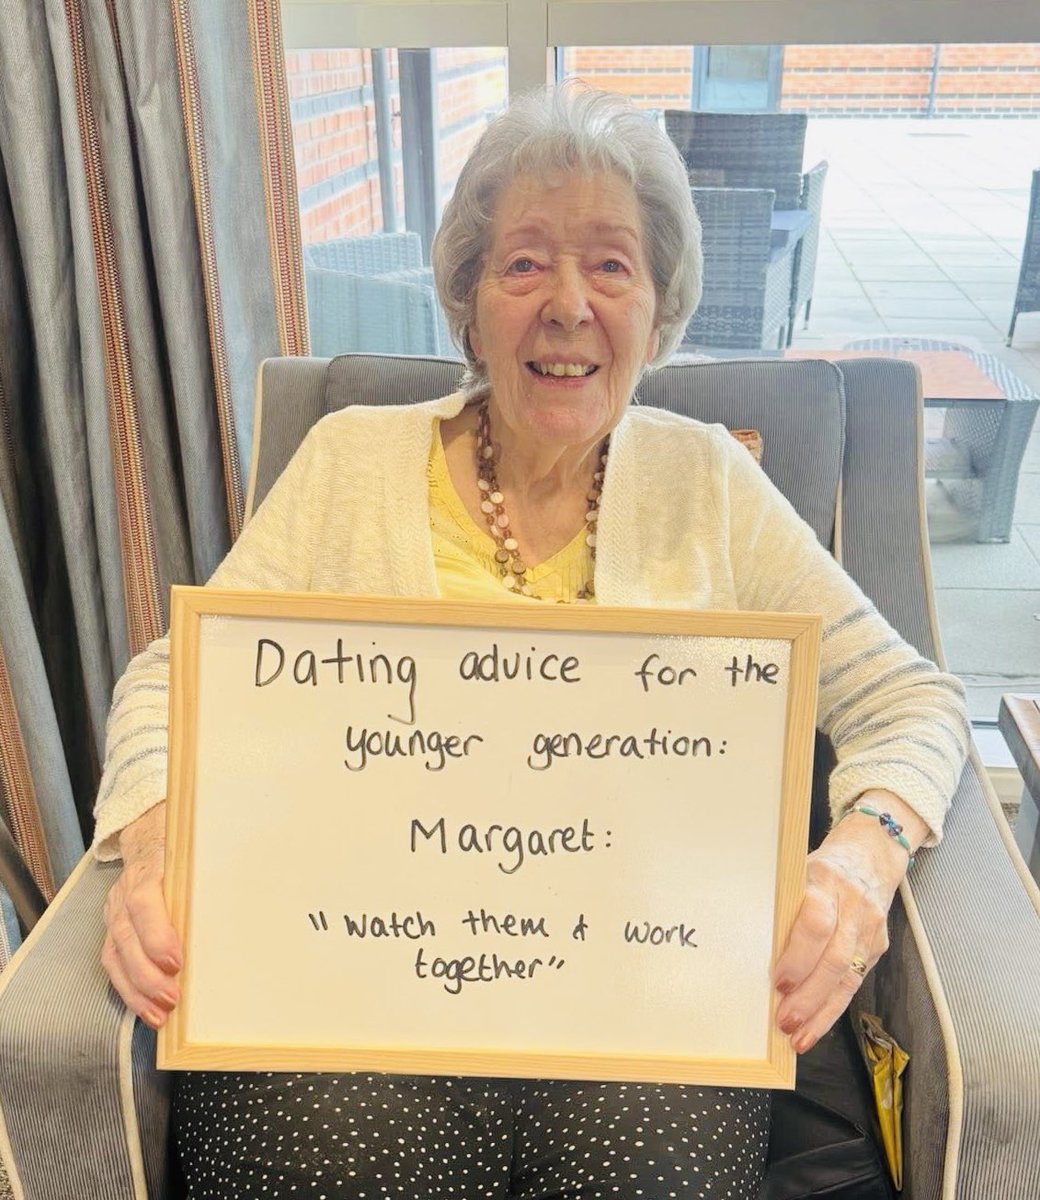 Dating advice for the
younger generation:
Margaret:
"watch them & work
together"